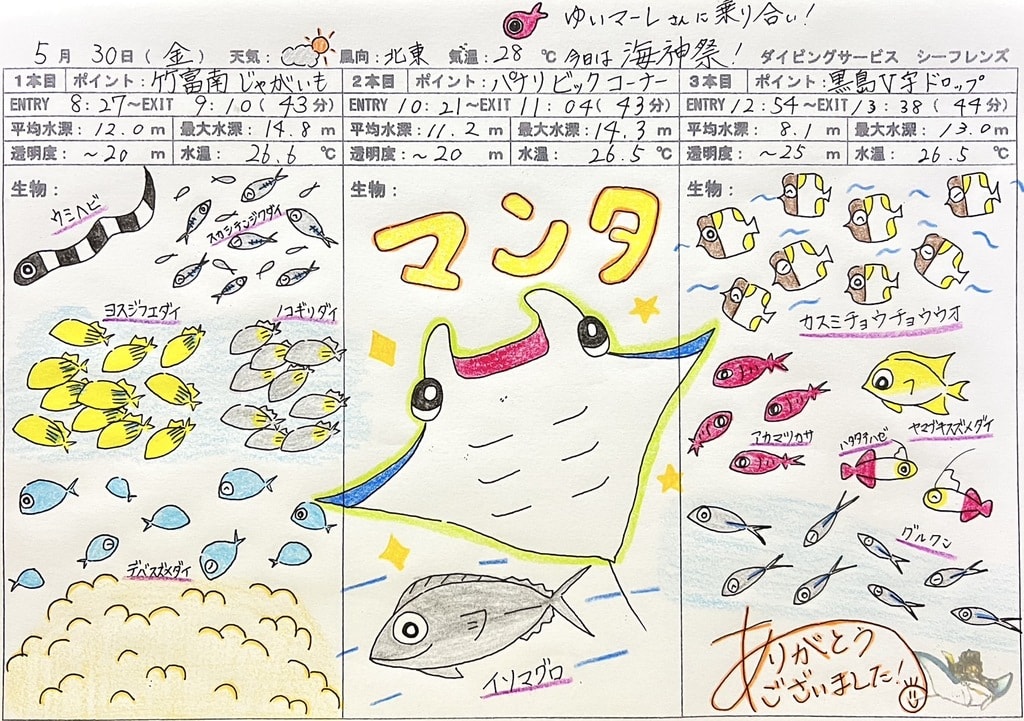 ゆいマーレさんに乗り合い!
5月 30日(金) 天気: 風向:北東 気温:28 ℃ 今日は海神祭! ダイビングサービス シーフレンズ
1本目 ポイント:竹富南じゃがいも
ENTRY 8:27～EXIT 9:10(43分)
平均水深:12.0m 最大水深:14.8m
透明度:～20m 水温:26.6℃
生物:
ウミヘビ
スカシテンジクダイ
ヨスジフエダイ
ノコギリダイ
デバスズメダイ
2本目 ポイント:パナリビックコーナー
ENTRY 10:21～EXIT 11:04(43分)
平均水深:11.2m 最大水深:14.3m
透明度:～20m 水温:26.5℃
生物:
マンタ
イソマグロ
3本目 ポイント:黒島V字ドロップ
ENTRY 12:54～EXIT 13:38(44分)
平均水深:8.1m 最大水深:13.0m
透明度:～25m 水温:26.5℃
生物:
カスミチョウチョウウオ
アカマツカサ
ハタタテハゼ
ヤマブキスズメダイ
グルクン
ありがとう
ございました!